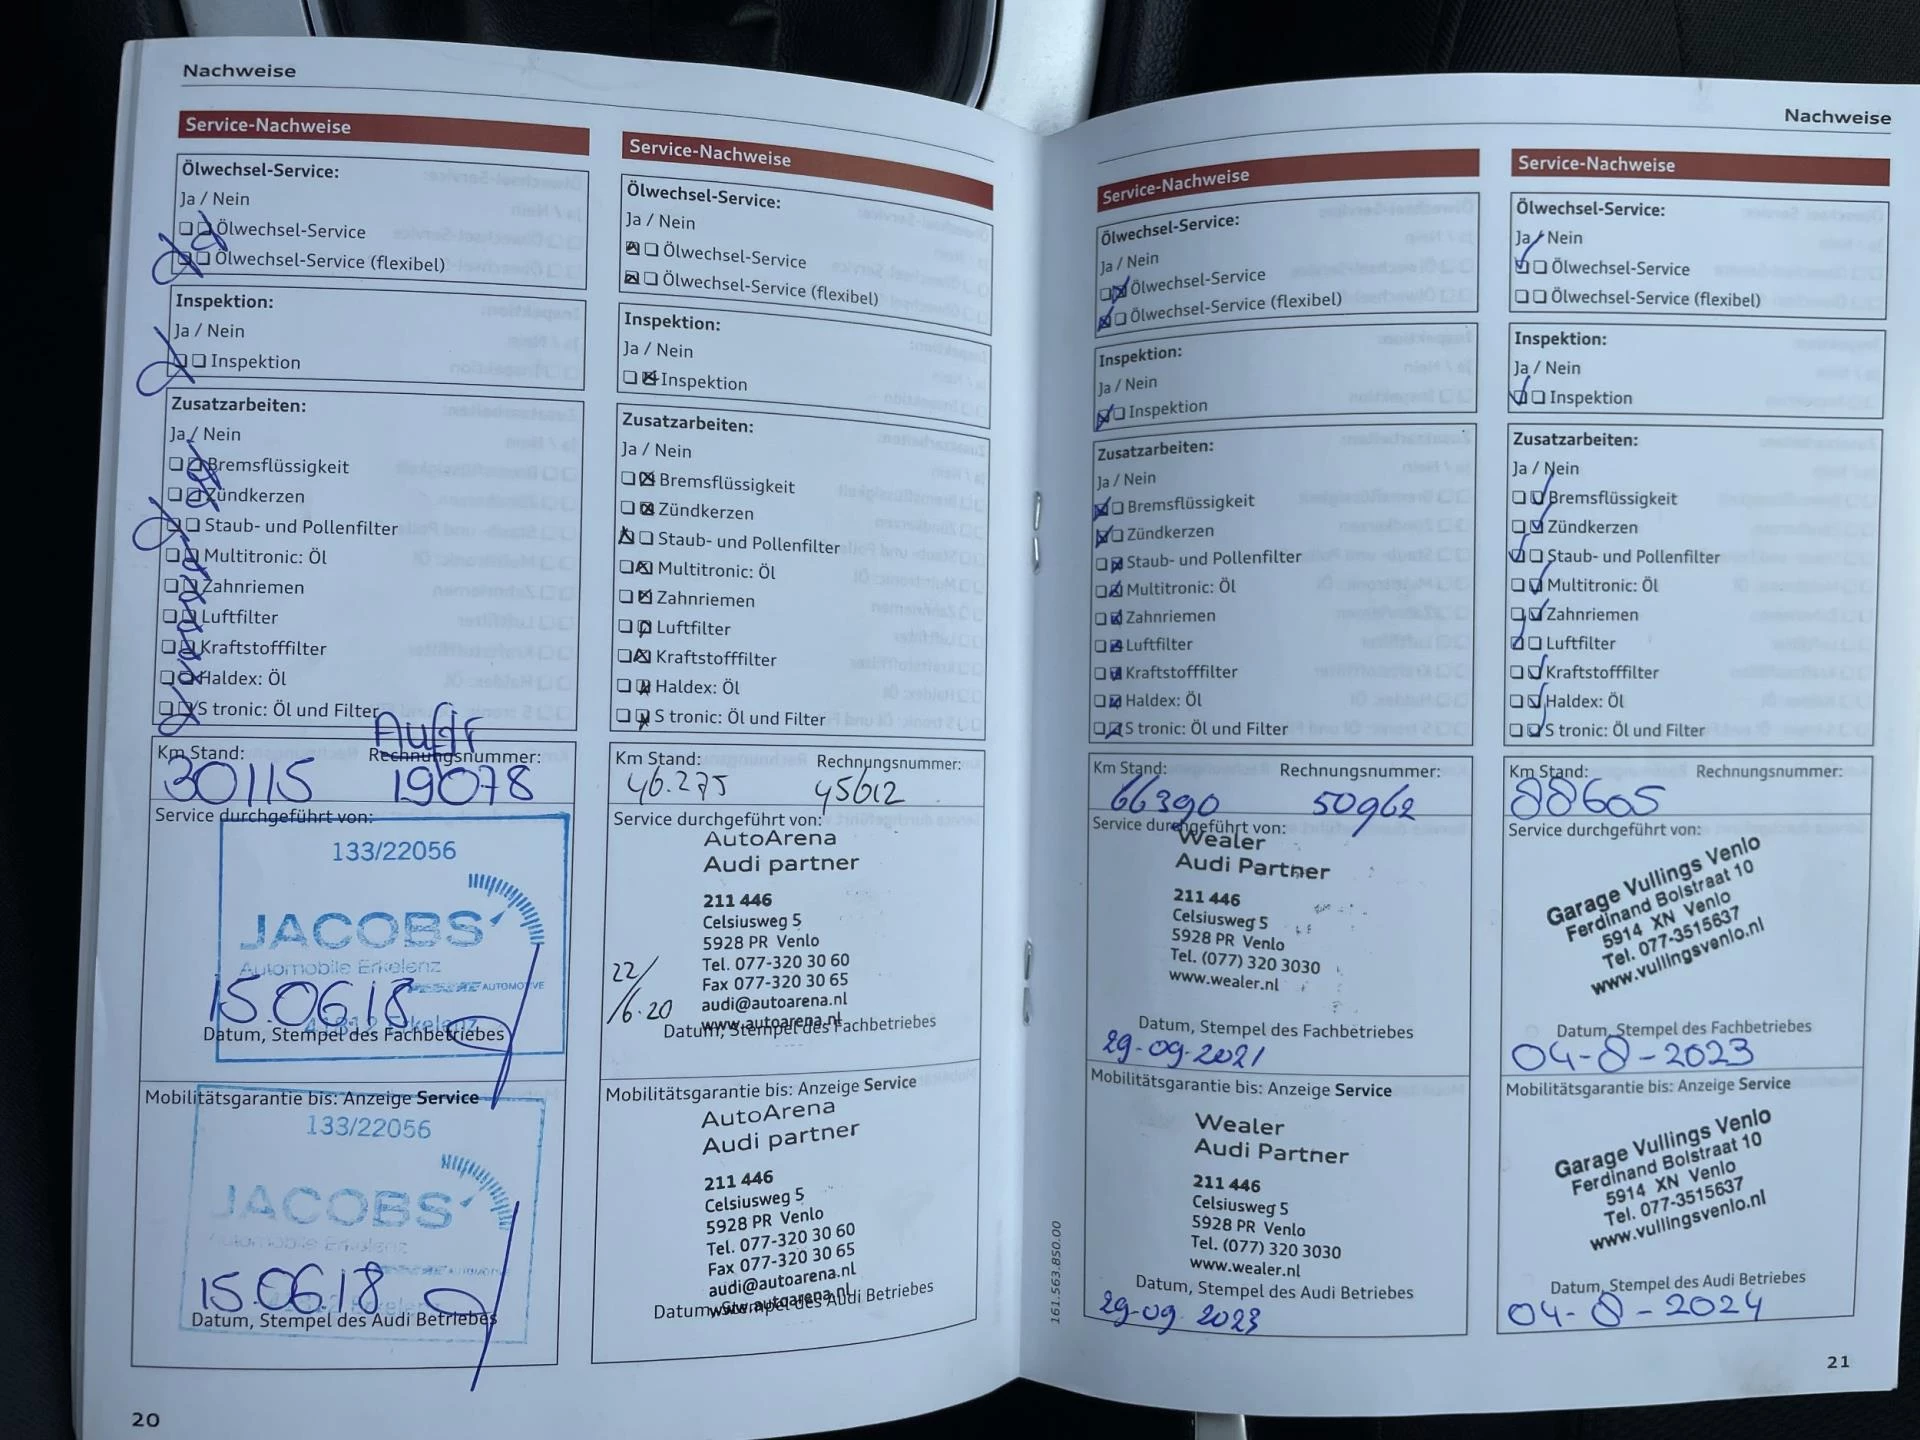 Nachweise
Service-Nachweise
Ölwechsel-Service:
Ja / Nein
Ölwechsel-Service
Ölwechsel-Service (flexibel)
Inspektion:
Ja / Nein
Inspektion
Zusatzarbeiten:
Ja / Nein
Bremsflüssigkeit
Zündkerzen
Staub- und Pollenfilter
Multitronic: Öl
Zahnriemen
Luftfilter
Kraftstofffilter
Haldex: Öl
S tronic: Öl und Filter
Km Stand: Rechnungsnummer:
30115 19078
Service durchgeführt von:
133/22056
JACOBS
Automobile Erkelenz
AUTOMOTIVE
15.06.18
41812 Erkelenz
Datum, Stempel des Fachbetriebes
Mobilitätsgarantie bis: Anzeige Service
133/22056
JACOBS
Automobile Erkelenz
15.06.18
41812 Erkelenz
Datum, Stempel des Audi Betriebes
20
Service-Nachweise
Ölwechsel-Service:
Ja / Nein
Ölwechsel-Service
Ölwechsel-Service (flexibel)
Inspektion:
Ja / Nein
Inspektion
Zusatzarbeiten:
Ja / Nein
Bremsflüssigkeit
Zündkerzen
Staub- und Pollenfilter
Multitronic: Öl
Zahnriemen
Luftfilter
Kraftstofffilter
Haldex: Öl
S tronic: Öl und Filter
Km Stand: Rechnungsnummer:
46.275 45612
Service durchgeführt von:
AutoArena
Audi partner
211 446
Celsiusweg 5
5928 PR Venlo
Tel. 077-320 30 60
Fax 077-320 30 65
audi@autoarena.nl
www.autoarena.nl
22/6.20
Datum, Stempel des Fachbetriebes
Mobilitätsgarantie bis: Anzeige Service
AutoArena
Audi partner
211 446
Celsiusweg 5
5928 PR Venlo
Tel. 077-320 30 60
Fax 077-320 30 65
audi@autoarena.nl
www.autoarena.nl
Datum, Stempel des Audi Betriebes
Nachweise
Service-Nachweise
Ölwechsel-Service:
Ja / Nein
Ölwechsel-Service
Ölwechsel-Service (flexibel)
Inspektion:
Ja / Nein
Inspektion
Zusatzarbeiten:
Ja / Nein
Bremsflüssigkeit
Zündkerzen
Staub- und Pollenfilter
Multitronic: Öl
Zahnriemen
Luftfilter
Kraftstofffilter
Haldex: Öl
S tronic: Öl und Filter
Km Stand: Rechnungsnummer:
66390 50962
Service durchgeführt von:
Wealer
Audi Partner
211 446
Celsiusweg 5
5928 PR Venlo
Tel. (077) 320 3030
www.wealer.nl
Datum, Stempel des Fachbetriebes
29-09-2021
Mobilitätsgarantie bis: Anzeige Service
Wealer
Audi Partner
211 446
Celsiusweg 5
5928 PR Venlo
Tel. (077) 320 3030
www.wealer.nl
Datum, Stempel des Audi Betriebes
29-09-2023
161.563.850.00
Service-Nachweise
Ölwechsel-Service:
Ja / Nein
Ölwechsel-Service
Ölwechsel-Service (flexibel)
Inspektion:
Ja / Nein
Inspektion
Zusatzarbeiten:
Ja / Nein
Bremsflüssigkeit
Zündkerzen
Staub- und Pollenfilter
Multitronic: Öl
Zahnriemen
Luftfilter
Kraftstofffilter
Haldex: Öl
S tronic: Öl und Filter
Km Stand: Rechnungsnummer:
88605
Service durchgeführt von:
Garage Vullings Venlo
Ferdinand Bolstraat 10
5914 XN Venlo
Tel. 077-3515637
www.vullingsvenlo.nl
Datum, Stempel des Fachbetriebes
04-8-2023
Mobilitätsgarantie bis: Anzeige Service
Garage Vullings Venlo
Ferdinand Bolstraat 10
5914 XN Venlo
Tel. 077-3515637
www.vullingsvenlo.nl
Datum, Stempel des Audi Betriebes
04-8-2024
21